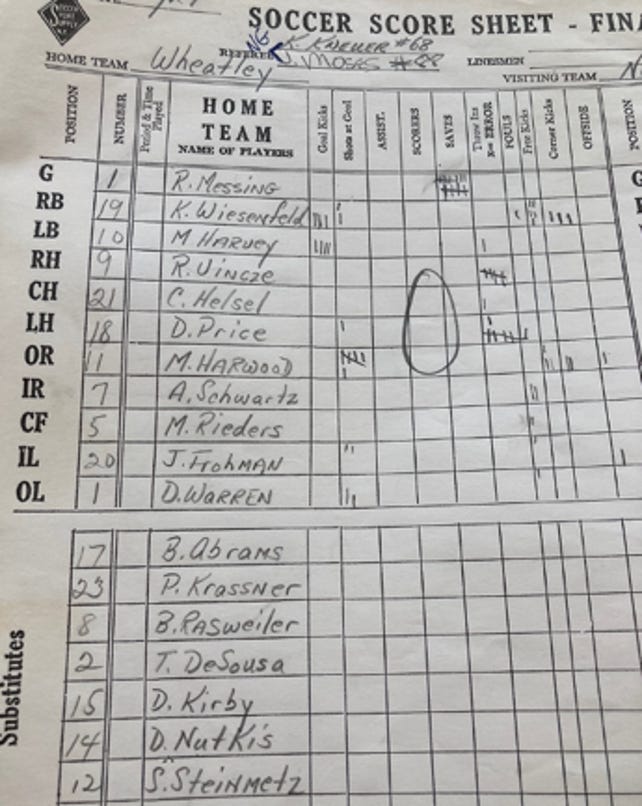 SOCCER SCORE SHEET - FINA
REFEREE K. KNEUER #68
J. MOSES #88
HOME TEAM Wheatley LINESMEN
VISITING TEAM N
POSITION NUMBER Period & Time Played HOME TEAM NAME OF PLAYERS Goal Kicks Shots at Goal ASSIST. SCORERS SAVES Throw Ins X-on ERROR FOULS Free Kicks Corner Kicks OFFSIDE POSITION
G 1 R. Messing G
RB 19 K. Wiesenfeld
LB 10 M HARVEY
RH 9 R. Vincze
CH 21 C. Helsel
LH 18 D. Price
OR 11 M. HARWOOD
IR 7 A. Schwartz
CF 5 M. Rieders
IL 20 J. FrohMAN
OL 1 D. WARREN
Substitutes
17 B. Abrams
23 P. Krassner
8 B. RASweiler
2 T. DeSousa
15 D. Kirby
14 D. Nutkis
12 S. SteinMetz